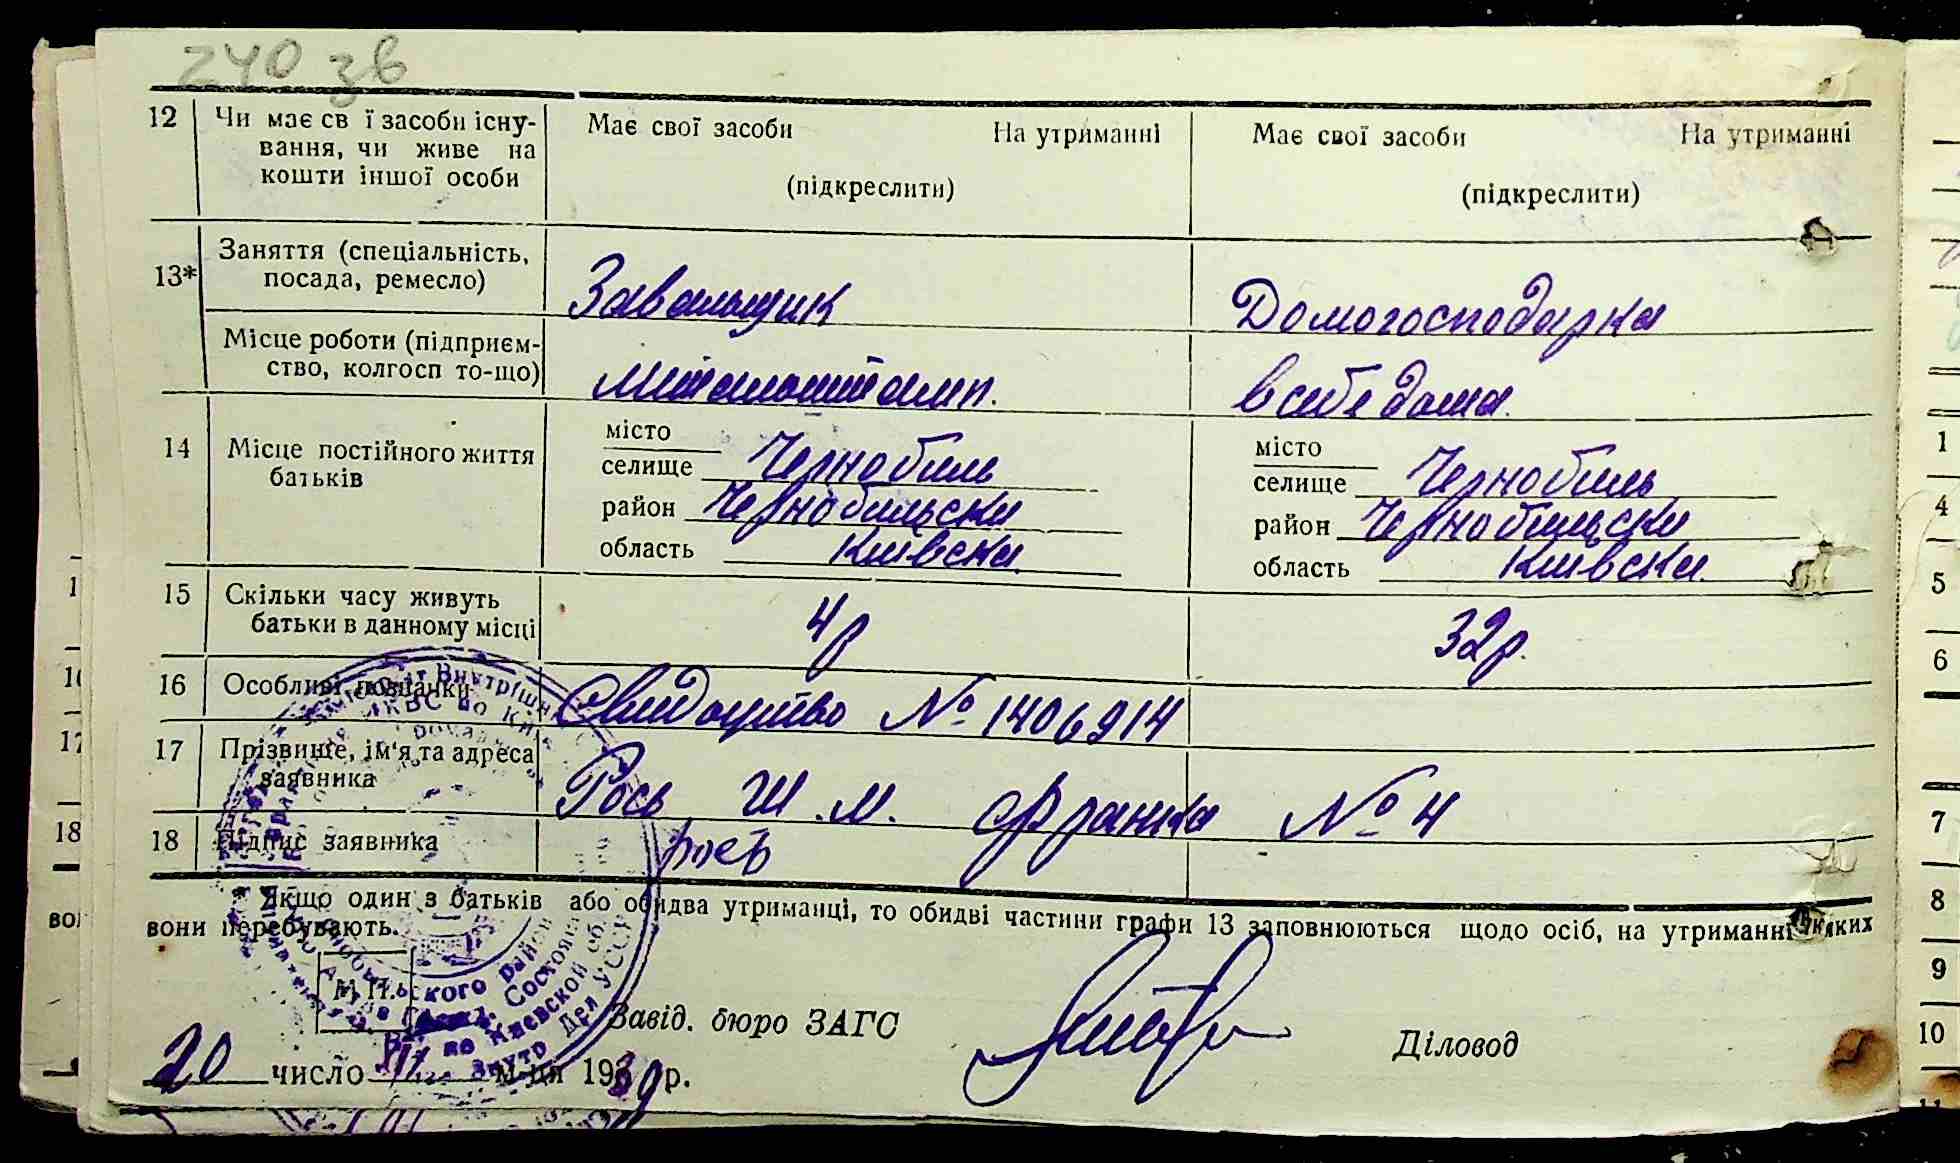 240 зв
12 Чи має св ї засоби існу- Має свої засоби На утриманні Має свої засоби На утриманні
вання, чи живе на
кошти іншої особи (підкреслити) (підкреслити)
13* Заняття (спеціальність,
посада, ремесло) Завальщик Домогосподарка
Місце роботи (підприєм-
ство, колгосп то-що) в себе дома
14 Місце постійного життя
батьків
місто місто
селище Чернобиль селище Чернобиль
район Чернобильски район Чернобильски
область Київска область Київска
15 Скільки часу живуть
батьки в данному місці 4р 32р.
16 Особливі позначки Свидоцтво № 1406914
17 Прізвище, ім'я та адреса
заявника Рось Ш. М. Франка № 4
18 Підпис заявника Рось
Якщо один з батьків або обидва утриманці, то обидві частини графи 13 заповнюються щодо осіб, на утриманні яких
вони перебувають.
М П.
Завід. бюро ЗАГС Діловод
20 число м-ця 1939 р.
1
4
5
6
7
8
9
10
11
1
17
18